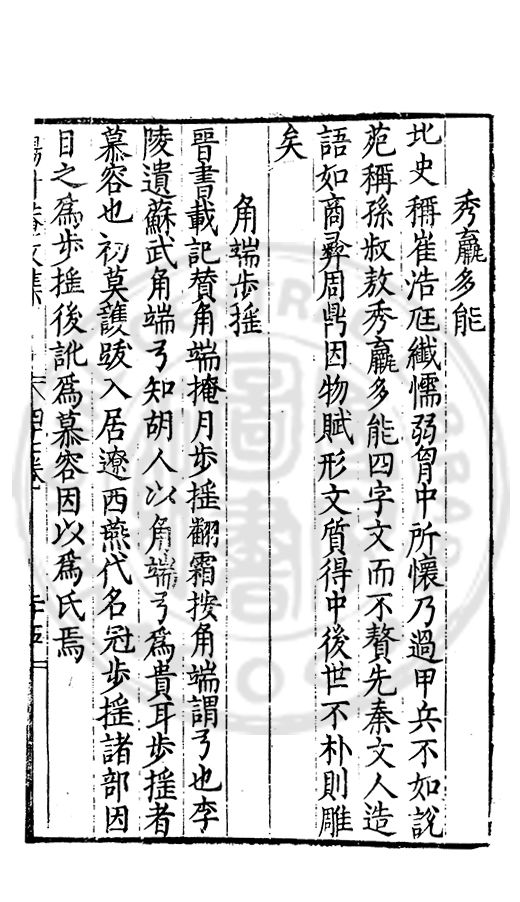 秀羸多能
北史稱崔浩尫纖懦弱胷中所懷乃過甲兵不如說
苑稱孫叔敖秀羸多能四字文而不贅先秦文人造
語如商彛周鼎因物賦形文質得中後世不朴則雕
矣
角端步揺
晉書載記賛角端掩月步揺翻霜按角端謂弓也李
陵遺蘇武角端弓知胡人以角端弓爲貴耳步揺者
慕容也初莫護跋入居遼西燕代名冠步揺諸部因
目之爲步揺後訛爲慕容因以爲氏焉